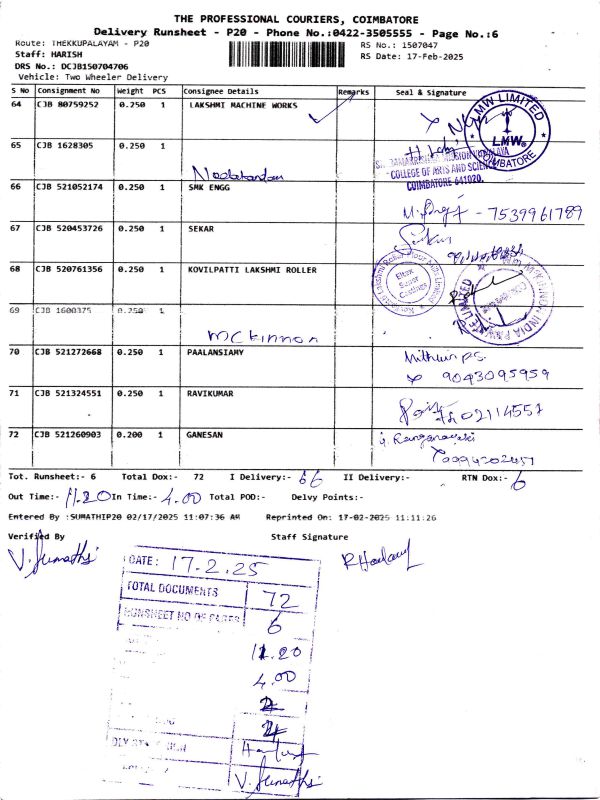 THE PROFESSIONAL COURIERS, COIMBATORE
Delivery Runsheet - P20 - Phone No.:0422-3505555 - Page No.:6
Route: THEKKUPALAYAM - P20
RS No.: 1507047
Staff: HARISH
RS Date: 17-Feb-2025
DRS No.: DCJB150704706
Vehicle: Two Wheeler Delivery
S No Consignment No Weight PCS Consignee Details Remarks Seal & Signature
64 CJB 80759252 0.250 1 LAKSHMI MACHINE WORKS
LMW LIMITED
LMW
COIMBATORE
65 CJB 1628305 0.250 1
COLLEGE OF ARTS AND SCIENCE
COIMBATORE-641020.
66 CJB 521052174 0.250 1 SMK ENGG
- 7539961789
67 CJB 520453726 0.250 1 SEKAR
68 CJB 520761356 0.250 1 KOVILPATTI LAKSHMI ROLLER
Eltex
Super
Castings
69 CJB 1600375 0.250 1
Mckinnon
70 CJB 521272668 0.250 1 PAALANSIAMY
Mithun p.s.
9043095959
71 CJB 521324551 0.250 1 RAVIKUMAR
72 CJB 521260903 0.200 1 GANESAN
Tot. Runsheet:- 6 Total Dox:- 72 I Delivery:- 66 II Delivery:- RTN Dox:- 6
Out Time:- 11.20 In Time:- 4.00 Total POD:- Delvy Points:-
Entered By :SUMATHIP20 02/17/2025 11:07:36 AM Reprinted On: 17-02-2025 11:11:26
Verified By Staff Signature
V. Sumathi
DATE : 17.2.25
TOTAL DOCUMENTS 72
RUNSHEET NO OF PAGES 6
11.20
4.00
V. Sumathi